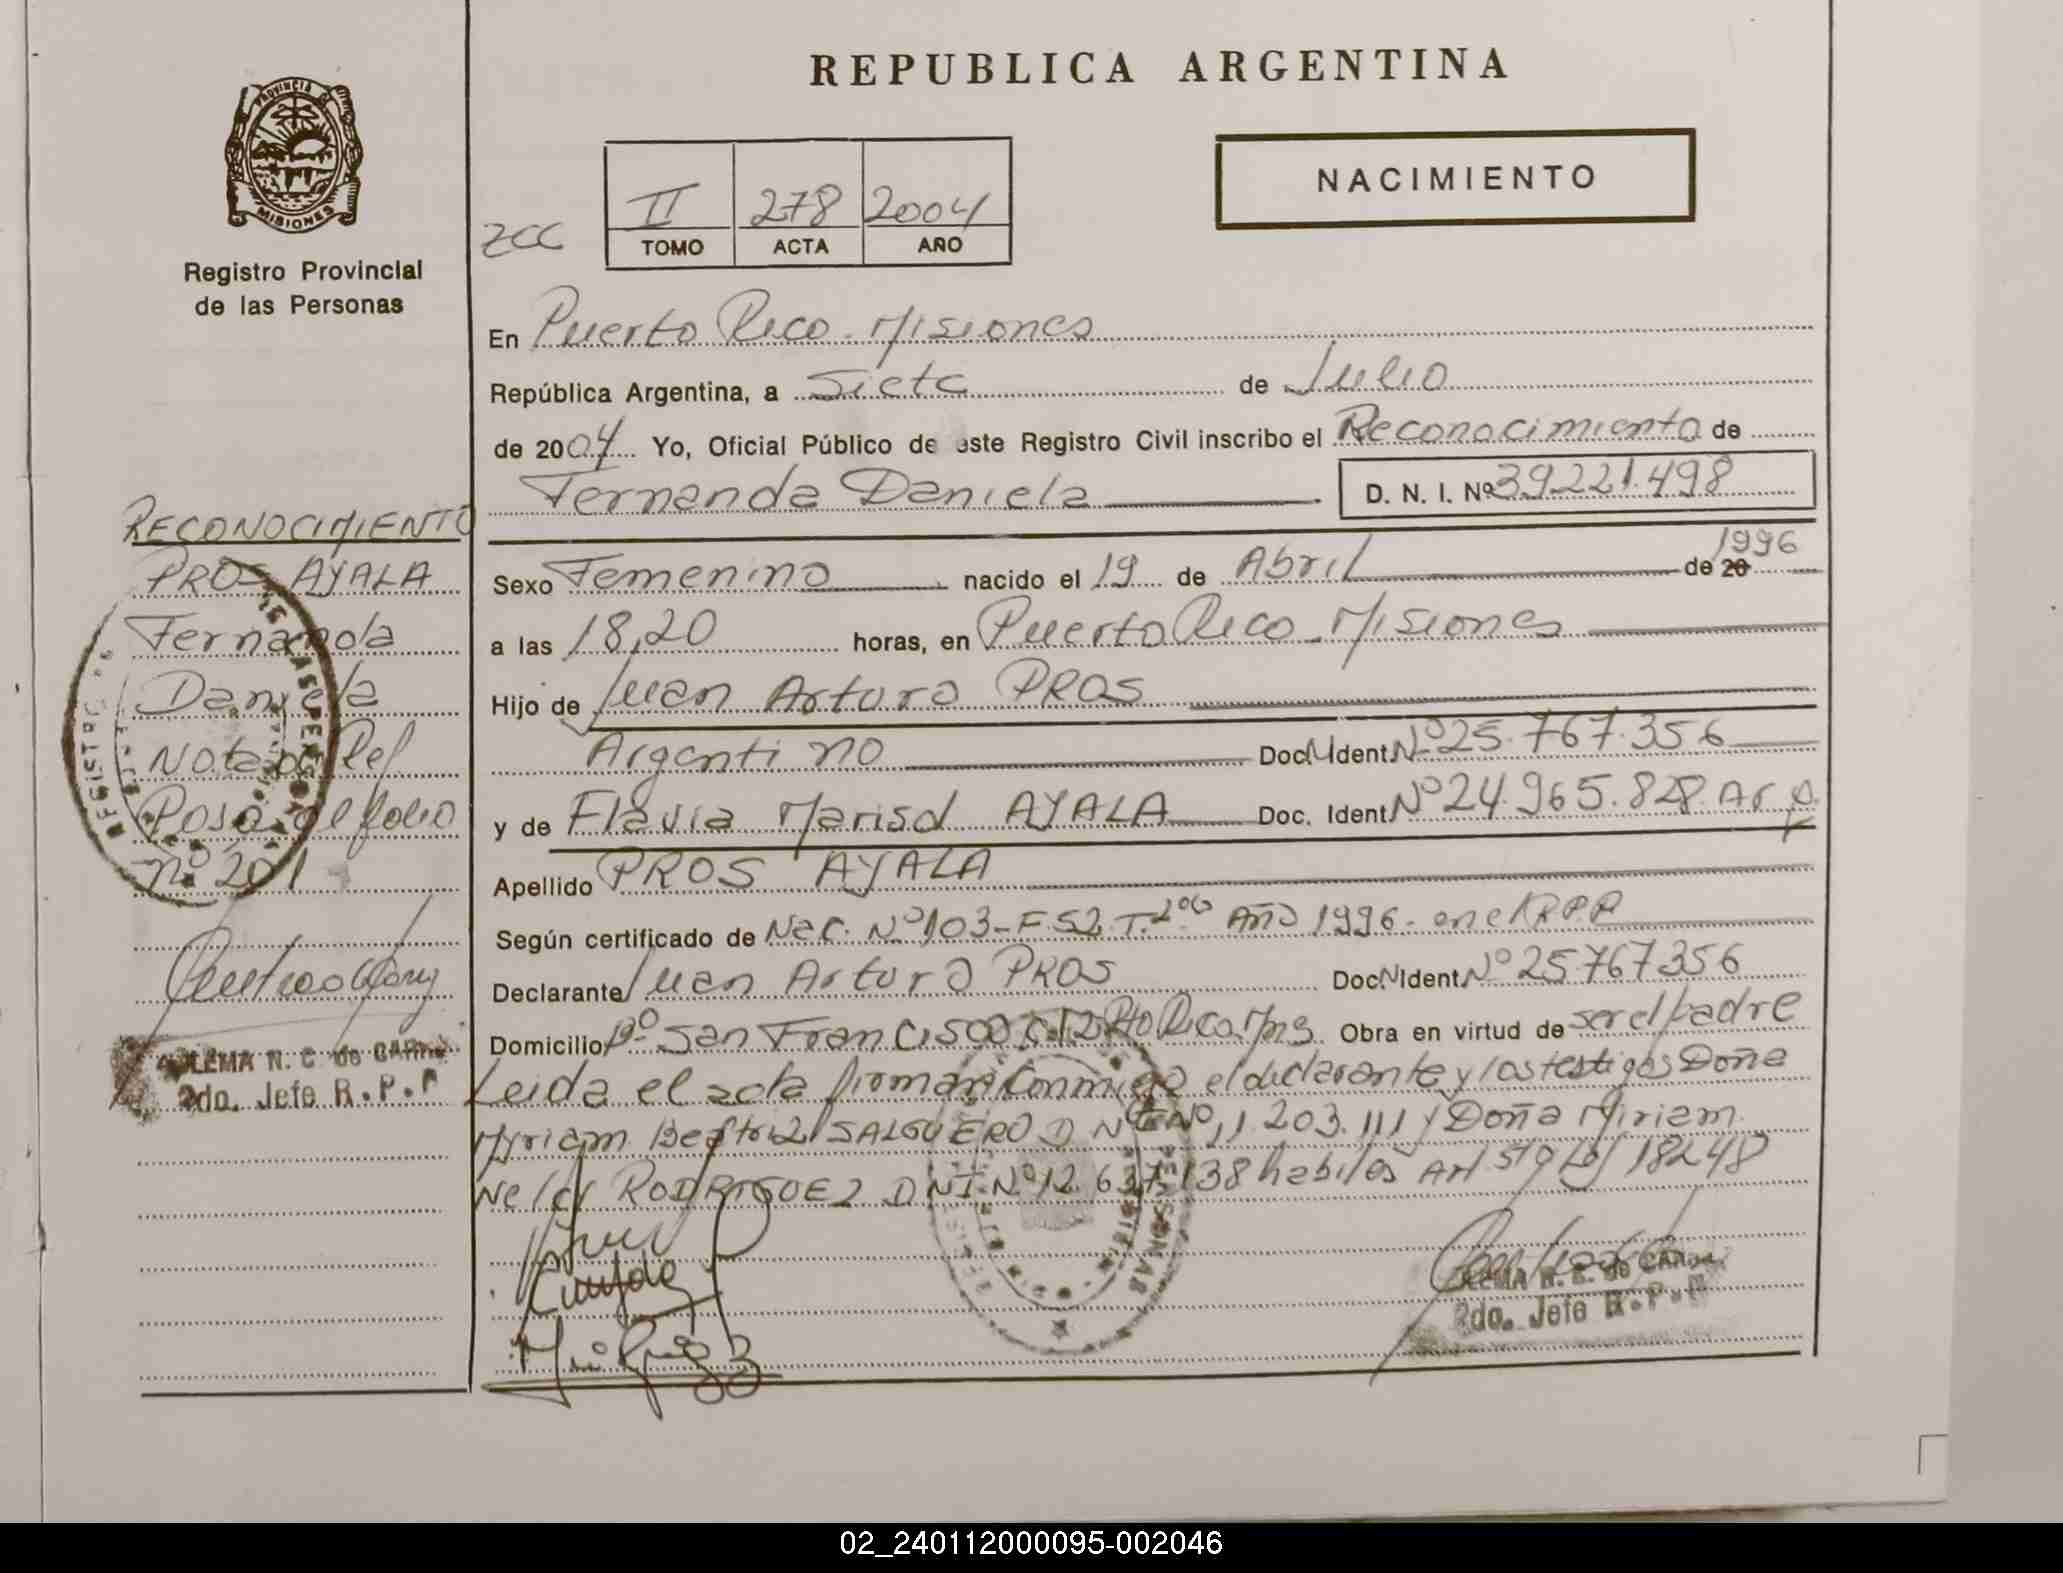 REPUBLICA ARGENTINA
PROVINCIA DE
MISIONES
Registro Provincial
de las Personas
NACIMIENTO
ZCC
II 278 2004
TOMO ACTA AÑO
En Puerto Rico - Misiones
República Argentina, a Siete de Julio
de 2004 Yo, Oficial Público de este Registro Civil inscribo el Reconocimiento de
Fernanda Daniela D. N. I. Nº 39221.498
Sexo Femenino nacido el 19 de Abril de 20 1996
a las 18,20 horas, en Puerto Rico - Misiones
Hijo de Juan Arturo PROS
Argentino Doc. Ident Nº 25.767.356
y de Flavia Marisol AYALA Doc. Ident Nº 24.965.828. Arg.
Apellido PROS AYALA
Según certificado de Nac. Nº 103-F.52.T.2º Año 1996 - en el R.P.P
Declarante Juan Arturo PROS Doc. Ident Nº 25767356
Domicilio Bº San Francisco C.12 Pto Rico Mns Obra en virtud de ser el padre
Leida el acta firman conmigo el declarante y los testigos Doña
Myriam Beatriz SALGUERO D N I Nº 11.203.111 y Doña Miriam
Nelly RODRIGUEZ D N I Nº 12.637.138 habiles Art 5to Ley 18248
RECONOCIMIENTO
PROS AYALA
Fernanda
Daniela
Nota de Ref
Pasa al folio
nº 201
ZULEMA N. C. de
2do. Jefe R.P.P
ZULEMA N. C. de
2do. Jefe R.P.P
02_240112000095-002046